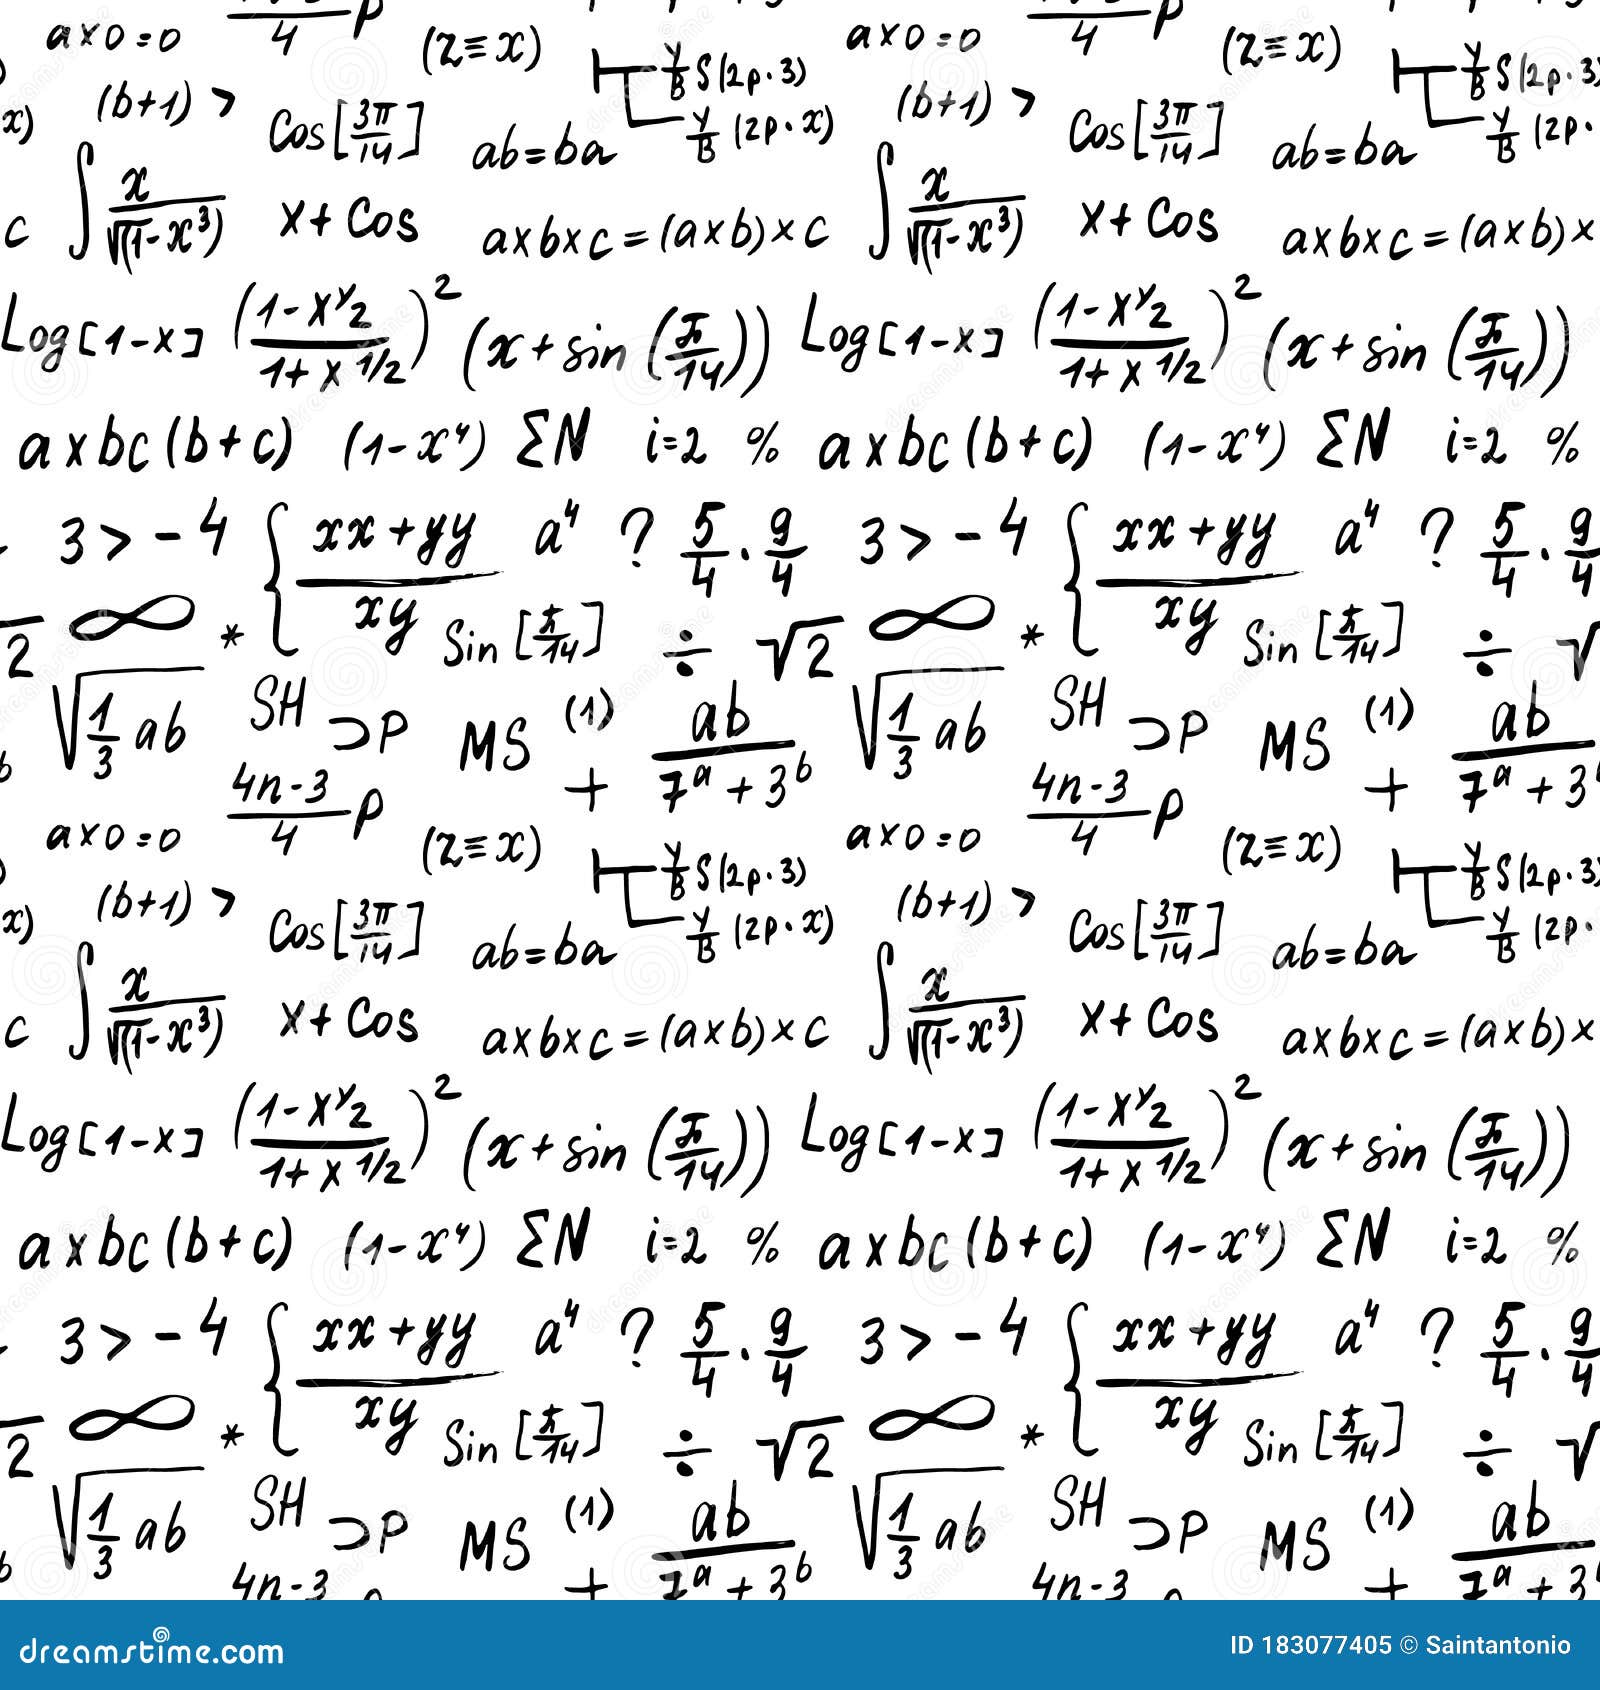 a×0=0 4 p (z≡x) a×0=0 4 p (z≡x)
Y/B S(2p·3) Y/B S(2p·3
x) (b+1) > Cos[3π/14] ab=ba Y/B (2p·x) (b+1) > Cos[3π/14] ab=ba Y/B (2p·
c ∫ x/√(1-x³) x+Cos a×b×c=(a×b)×c ∫ x/√(1-x³) x+Cos a×b×c=(a×b)×
Log[1-x] ((1-x^y2)/(1+x 1/2))² (x+sin(π/14)) Log[1-x] ((1-x^y2)/(1+x 1/2))² (x+sin(π/14))
a×bc(b+c) (1-x⁴) ΣN i=2 % a×bc(b+c) (1-x⁴) ΣN i=2 %
3>-4 { xx+yy/xy a⁴ ? 5/4 · 9/4 3>-4 { xx+yy/xy a⁴ ? 5/4 · 9/4
√2 ∞ * Sin[π/14] ÷ √2 ∞ * Sin[π/14] ÷ √
√1/3 ab SH ⊃P MS (1) ab/7ᵃ+3ᵇ √1/3 ab SH ⊃P MS (1) ab/7ᵃ+3
b 4n-3/4 p + 4n-3/4 p +
a×0=0 (z≡x) Y/B S(2p·3) a×0=0 (z≡x) Y/B S(2p·3
x) (b+1) > Cos[3π/14] ab=ba Y/B (2p·x) (b+1) > Cos[3π/14] ab=ba Y/B (2p·
c ∫ x/√(1-x³) x+Cos a×b×c=(a×b)×c ∫ x/√(1-x³) x+Cos a×b×c=(a×b)×
Log[1-x] ((1-x^y2)/(1+x 1/2))² (x+sin(π/14)) Log[1-x] ((1-x^y2)/(1+x 1/2))² (x+sin(π/14))
a×bc(b+c) (1-x⁴) ΣN i=2 % a×bc(b+c) (1-x⁴) ΣN i=2 %
3>-4 { xx+yy/xy a⁴ ? 5/4 · 9/4 3>-4 { xx+yy/xy a⁴ ? 5/4 · 9/4
√2 ∞ * Sin[π/14] ÷ √2 ∞ * Sin[π/14] ÷ √
√1/3 ab SH ⊃P MS (1) ab/7ᵃ+3ᵇ √1/3 ab SH ⊃P MS (1) ab/7ᵃ+3
b 4n-3 + 4n-3 +
dreamstime.com ID 183077405 © Saintantonio